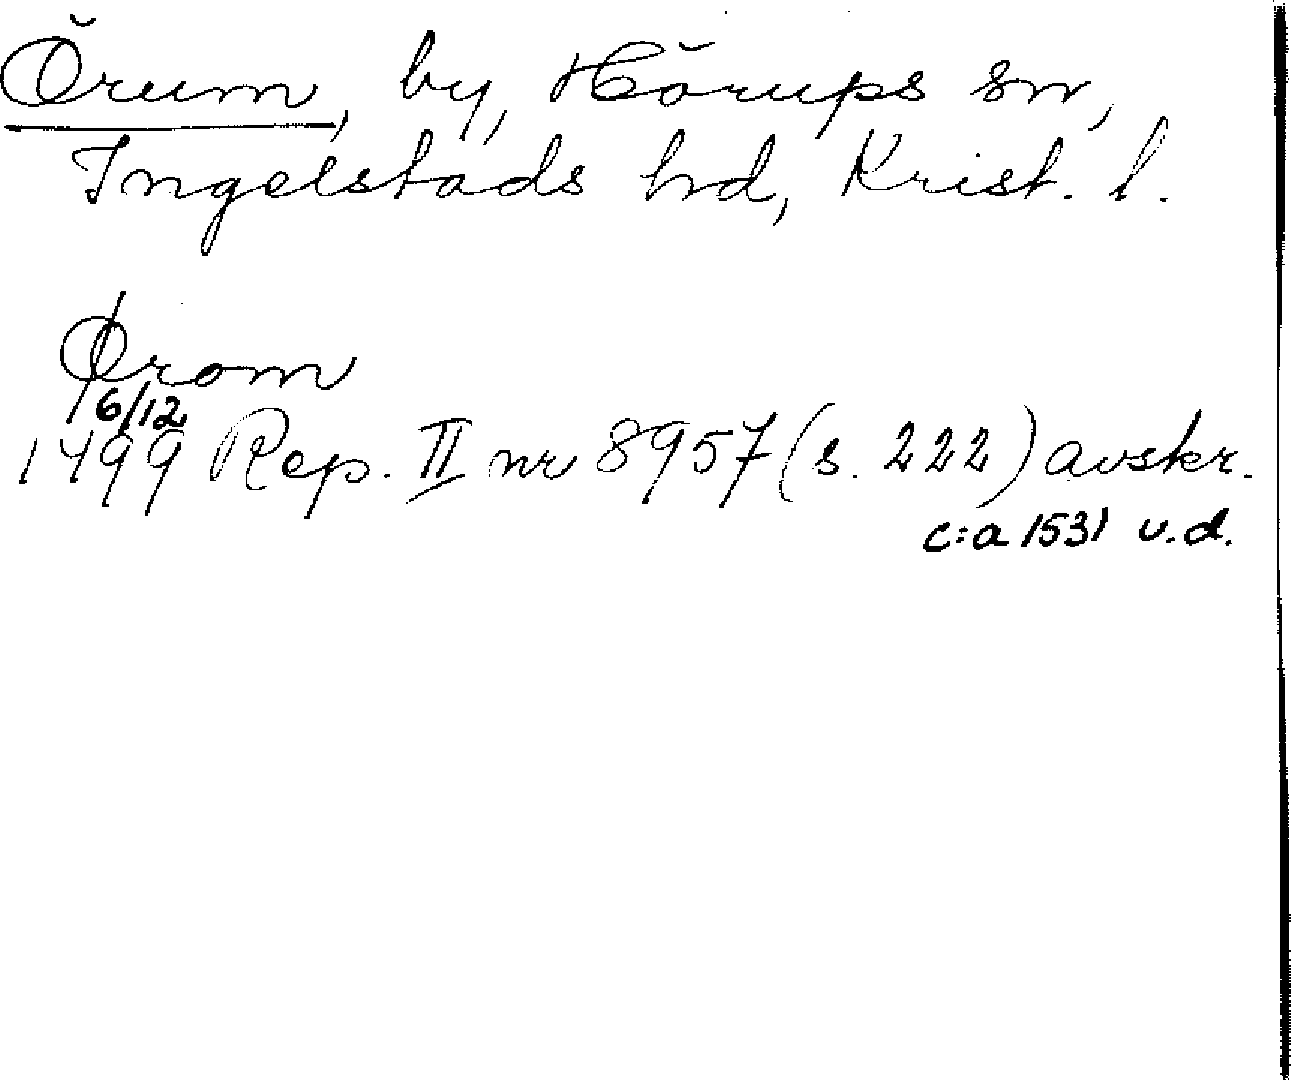 Örum, by, Hörups sn,
Ingelstads hd, Krist. l.
Ørom
6/12
1499 Rep. II nr 8957 (s. 222) avskr.
c:a 1531 u.d.